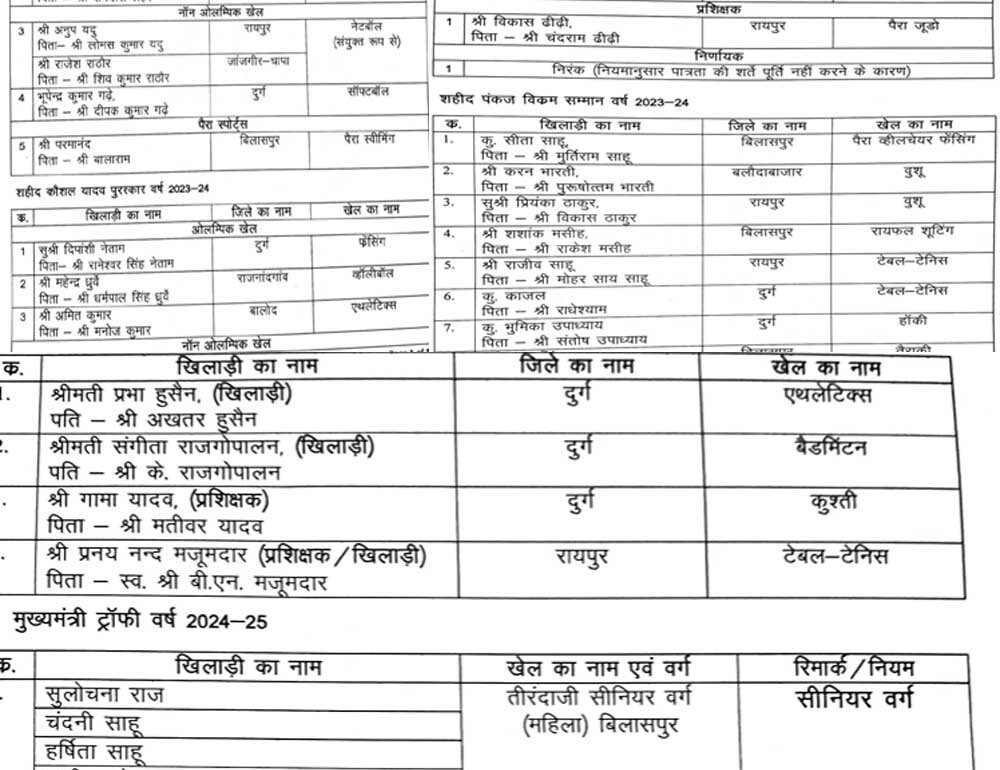 नॉन ओलम्पिक खेल
3 श्री अनुप यदु रायपुर नेटबॉल
पिता– श्री लोमस कुमार यदु (संयुक्त रूप से)
श्री राजेश राठौर जांजगीर–चापा
पिता – श्री शिव कुमार राठौर
4 भूपेन्द्र कुमार गढ़े, दुर्ग सॉफ्टबॉल
पिता – श्री दीपक कुमार गढ़े
पैरा स्पोर्ट्स
5 श्री परमानंद बिलासपुर पैरा स्वीमिंग
पिता – श्री बालाराम
शहीद कौशल यादव पुरस्कार वर्ष 2023–24
क. खिलाड़ी का नाम जिले का नाम खेल का नाम
ओलम्पिक खेल
1 सुश्री दिपांशी नेताम दुर्ग फेंसिंग
पिता– श्री रामेश्वर सिंह नेताम
2 श्री महेन्द्र ध्रुर्वे राजनांदगांव व्हॉलीबॉल
पिता – श्री धर्मपाल सिंह धुर्वे
3 श्री अमित कुमार बालोद एथलेटिक्स
पिता – श्री मनोज कुमार
नॉन ओलम्पिक खेल
प्रशिक्षक
1 श्री विकास ढीढ़ी, रायपुर पैरा जूडो
पिता – श्री चंदराम ढीढ़ी
निर्णायक
1 निरंक (नियमानुसार पात्रता की शर्ते पूर्ति नहीं करने के कारण)
शहीद पंकज विक्रम सम्मान वर्ष 2023–24
क. खिलाड़ी का नाम जिले का नाम खेल का नाम
1. कु. सीता साहू, बिलासपुर पैरा व्हीलचेयर फेंसिंग
पिता – श्री मुर्तिराम साहू
2. श्री करन भारती, बलौदाबाजार वुशू
पिता – श्री पुरूषोत्तम भारती
3. सुश्री प्रियंका ठाकुर, रायपुर वुशू
पिता – श्री विकास ठाकुर
4. श्री शशांक मसीह, बिलासपुर रायफल शूटिंग
पिता – श्री राकेश मसीह
5. श्री राजीव साहू रायपुर टेबल–टेनिस
पिता – श्री मोहर साय साहू
6. कु. काजल दुर्ग टेबल–टेनिस
पिता – श्री राधेश्याम
7. कु. भुमिका उपाध्याय दुर्ग हॉकी
पिता – श्री संतोष उपाध्याय
क. खिलाड़ी का नाम जिले का नाम खेल का नाम
1. श्रीमती प्रभा हुसैन, (खिलाड़ी) दुर्ग एथलेटिक्स
पति – श्री अखतर हुसैन
श्रीमती संगीता राजगोपालन, (खिलाड़ी) दुर्ग बैडमिंटन
पति – श्री के. राजगोपालन
श्री गामा यादव, (प्रशिक्षक) दुर्ग कुश्ती
पिता – श्री मतीवर यादव
श्री प्रनय नन्द मजूमदार (प्रशिक्षक/खिलाड़ी) रायपुर टेबल–टेनिस
पिता – स्व. श्री बी.एन. मजूमदार
मुख्यमंत्री ट्रॉफी वर्ष 2024–25
क. खिलाड़ी का नाम खेल का नाम एवं वर्ग रिमार्क/नियम
सुलोचना राज तीरंदाजी सीनियर वर्ग सीनियर वर्ग
चंदनी साहू (महिला) बिलासपुर
हर्षिता साहू